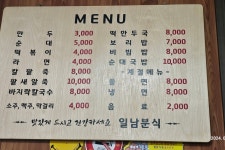 MENU
만두 3,000 떡만두국 8,000
순대 5,000 보리밥 7,000
떡볶이 4,000 비빔밥 8,000
라면 4,000 순대국밥 10,000
칼팥죽 8,000 -계절메뉴-
팥새알죽 10,000 콩면 8,000
바지락칼국수 8,000 냉면 8,000
소주, 맥주, 막걸리 4,000 음료 2,000
맛있게 드시고 건강하세요 일남분식
2024.